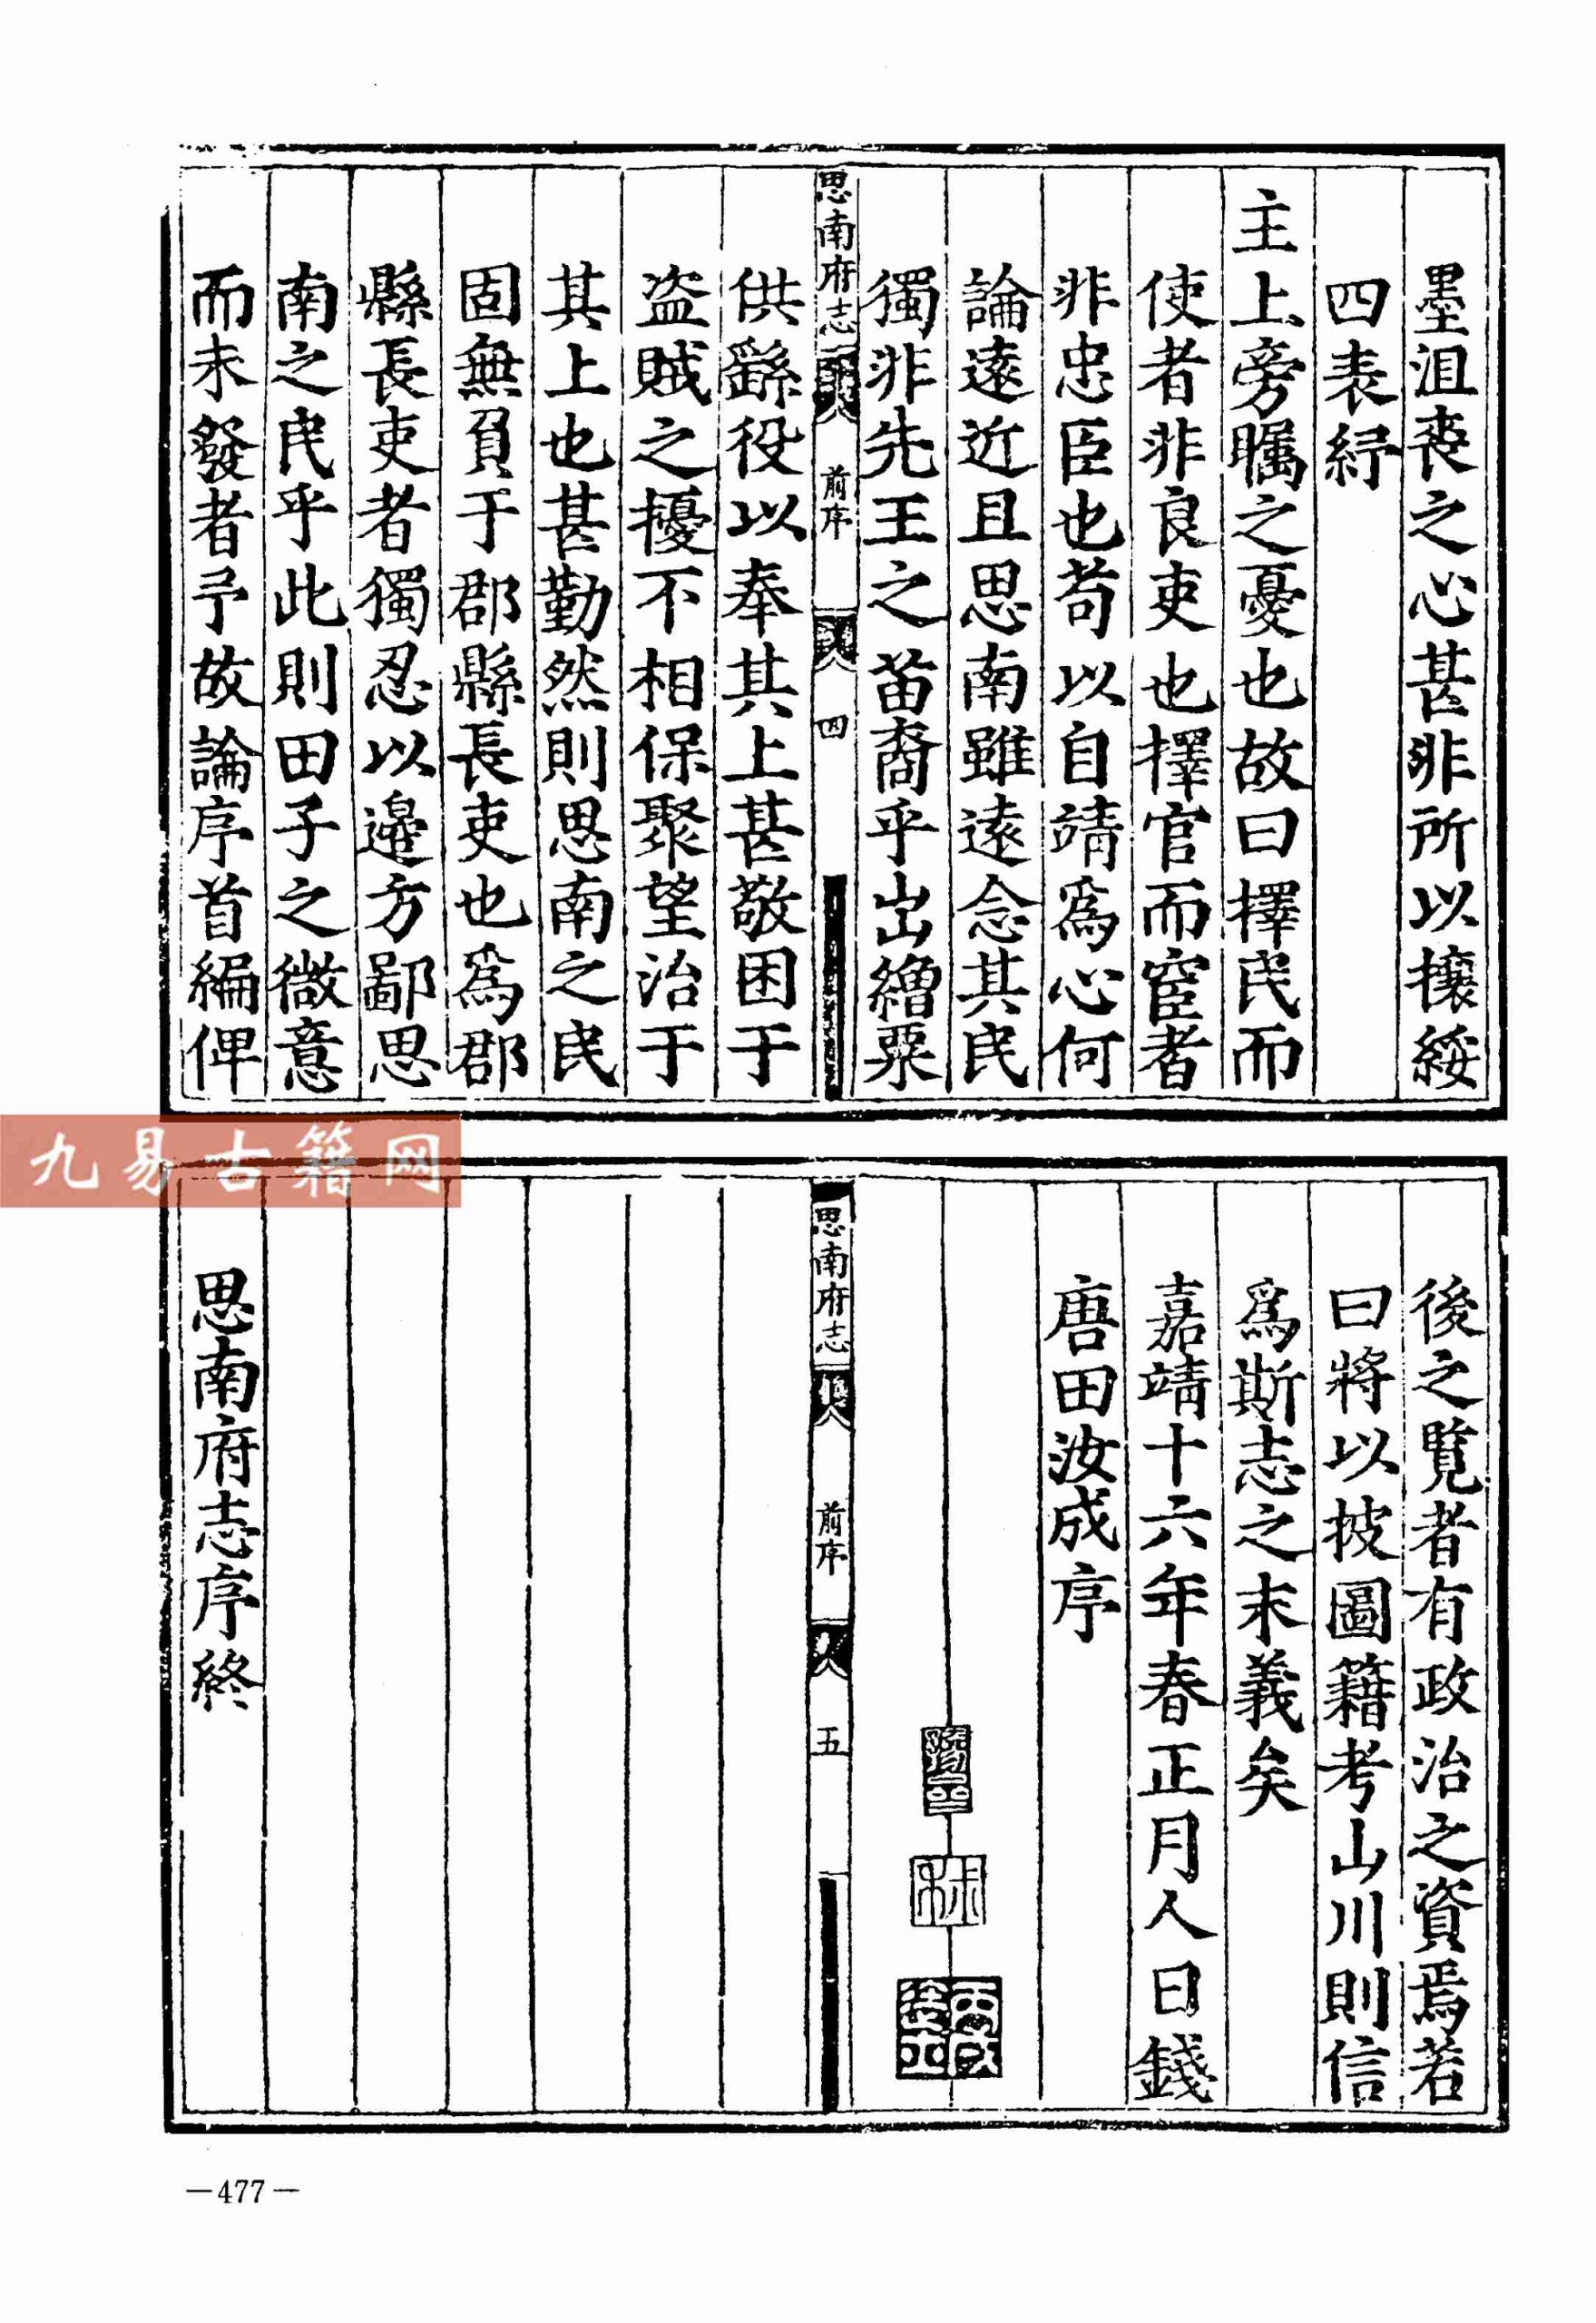 墨沮喪之心甚非所以攘綏
四表紓
主上旁矚之憂也故曰擇民而
使者非良吏也擇官而宦者
非忠臣也苟以自靖爲心何
論遠近且思南雖遠念其民
獨非先王之苗裔乎出繒粟
思南府志
前序
四
供繇役以奉其上甚敬困于
盜賊之擾不相保聚望治于
其上也甚勤然則思南之民
固無負于郡縣長吏也爲郡
縣長吏者獨忍以邊方鄙思
南之民乎此則田子之微意
而未發者予故論序首編俾
後之覽者有政治之資焉若
曰將以披圖籍考山川則信
爲斯志之末義矣
嘉靖十六年春正月人日錢
唐田汝成序
思南府志
前序
五
思南府志序終
九易古籍网
—477—